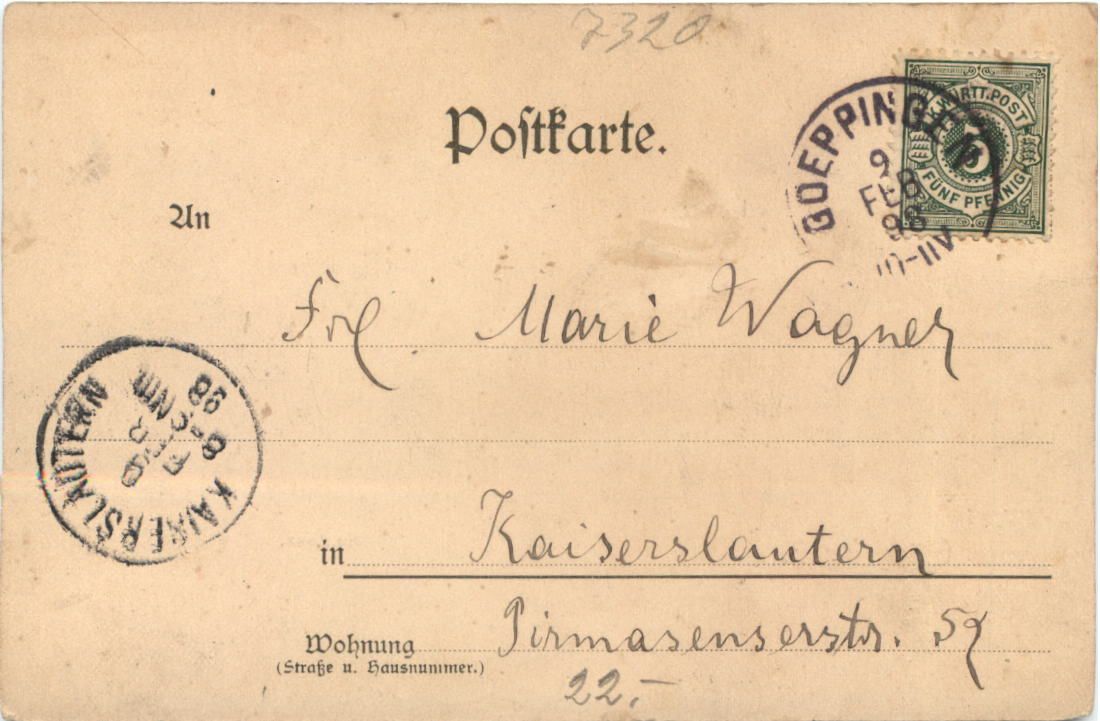 7320
Postkarte.
K. WÜRTT. POST
5
FÜNF PFENNIG
GOEPPINGEN
9
FEB
98
10-11V
An
Frl Marie Wagner
KAISERSLAUTERN
9
FEB
8-9 NM
98
in Kaiserslautern
Wohnung Pirmasenserstr. 59
(Straße u. Hausnummer.)
22.-